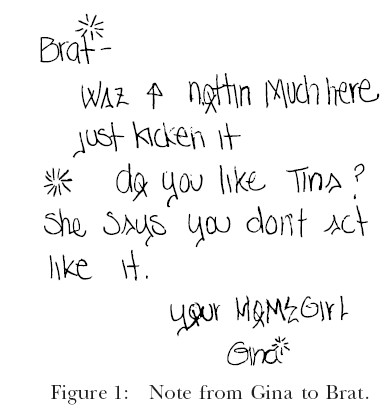 Brat-
WAZ ↑ nottin Much here
just kicken it
do you like Tina?
She SAys you don't Act
like it.
your HOMEZGirl
Gina
Figure 1: Note from Gina to Brat.